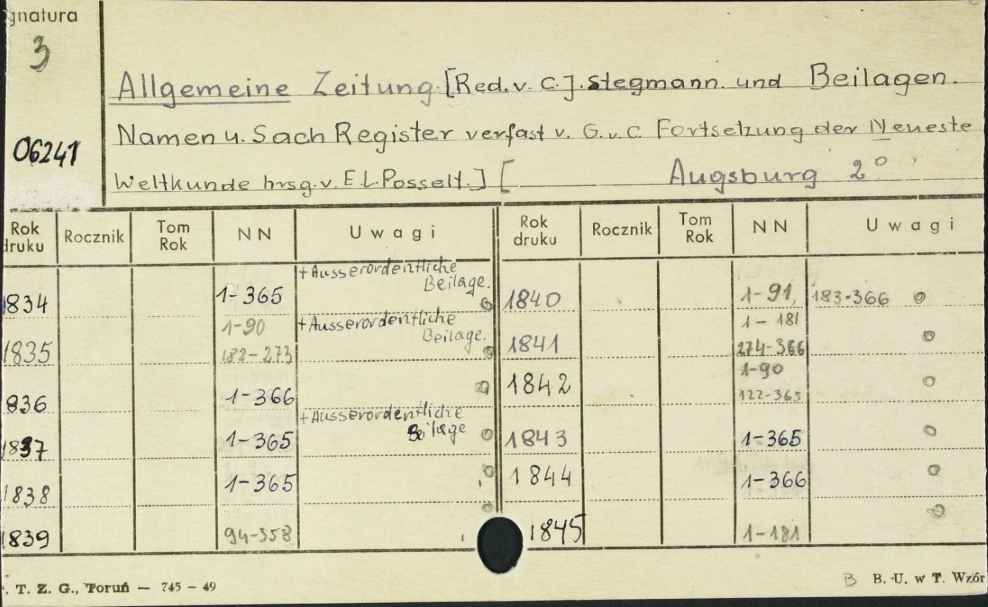 gnatura
3
06241
Allgemeine Zeitung [Red. v. C.]. Stegmann. und Beilagen.
Namen u. Sach Register verfast v. G. v. C. Fortsetzung der Neueste
Weltkunde hrsg. v. E. L. Posselt.] [ Augsburg 2°
Rok druku Rocznik Tom Rok NN Uwagi Rok druku Rocznik Tom Rok NN Uwagi
1834 1-365 + Ausserordentliche Beilage. 1840 1-91, 183-366
1835 1-90 182-273 + Ausserordentliche Beilage. 1841 1-181 274-366
836 1-366 1842 1-90 122-365
1837 1-365 + Ausserordentliche Beilage 1843 1-365
1838 1-365 1844 1-366
1839 94-358 1845 1-181
. T. Z. G., Toruń — 745 — 49 B B. U. w T. Wzór